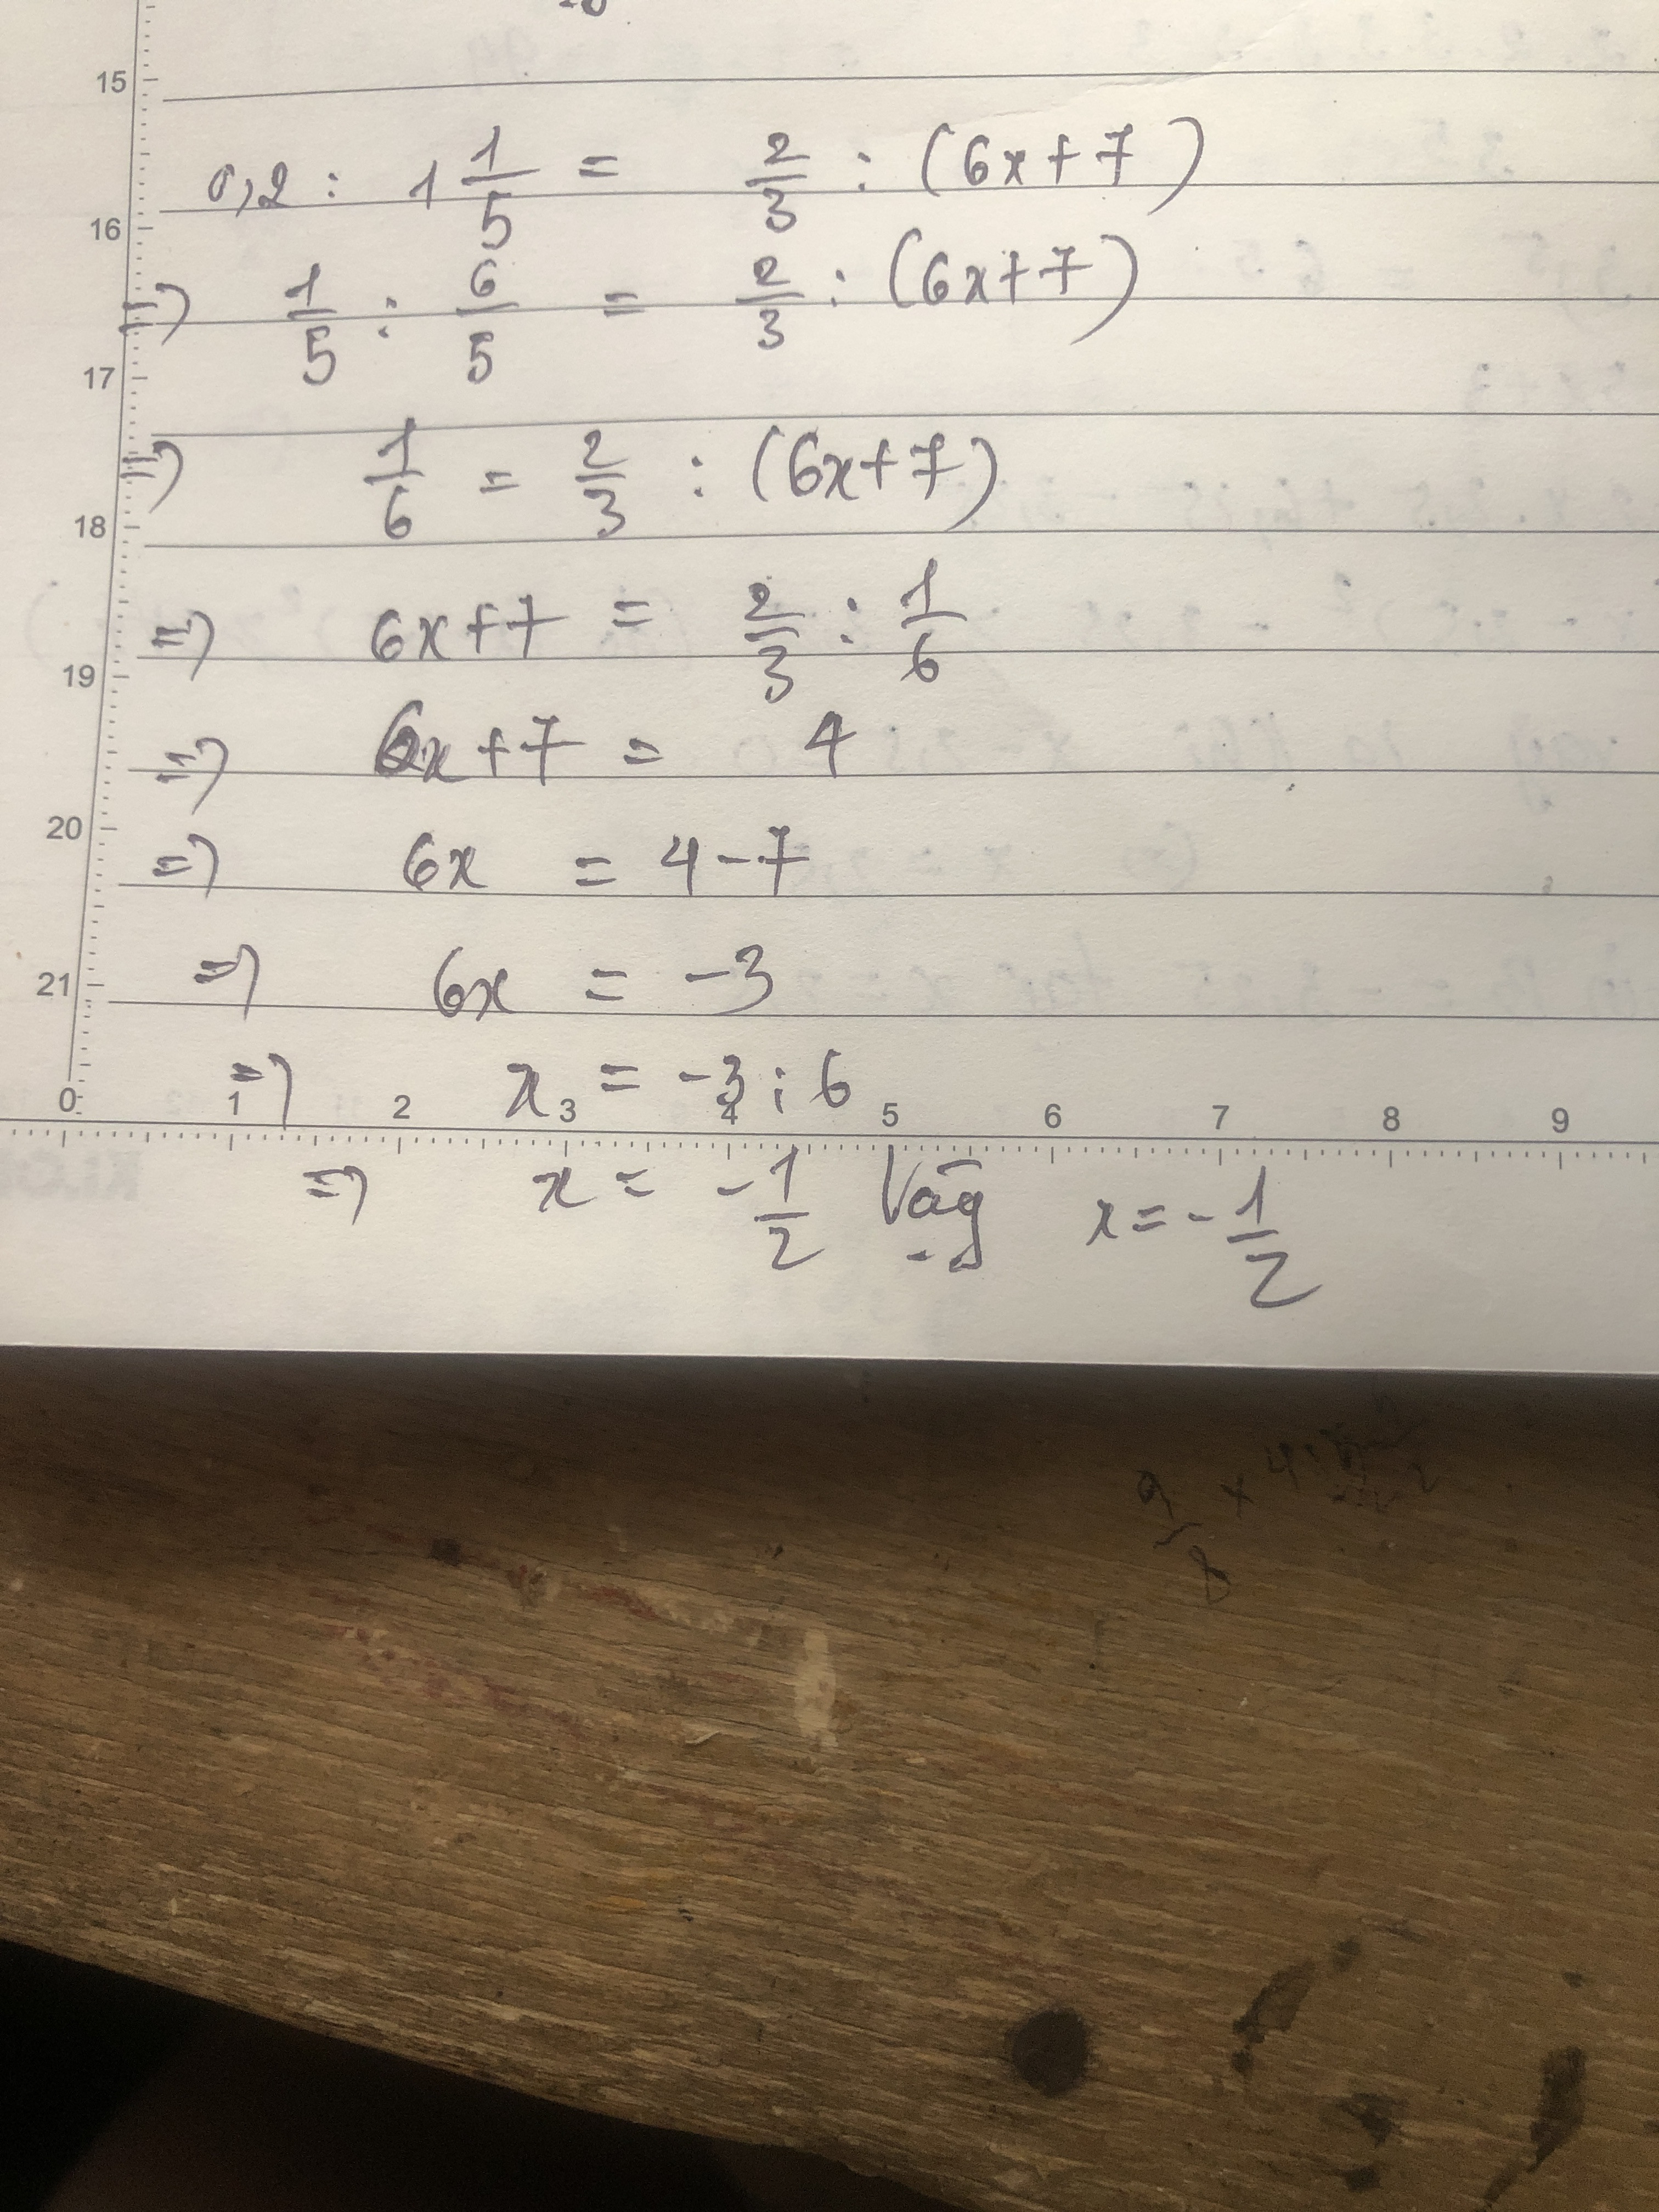 15
0,2 : 1 1/5 = 2/3 : (6x+7)
16
=> 1/5 : 6/5 = 2/3 : (6x+7)
17
=> 1/6 = 2/3 : (6x+7)
18
=> 6x+7 = 2/3 : 1/6
19
=> 6x+7 = 4
20
=> 6x = 4-7
=> 6x = -3
21
=> x = -3 : 6
0 1 2 3 4 5 6 7 8 9
=> x = -1/2 Vậy x = -1/2